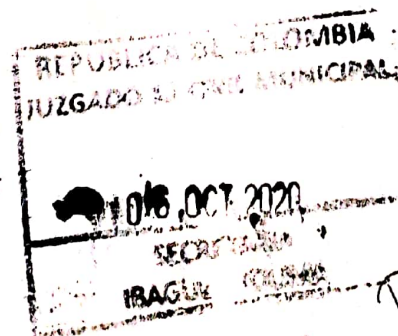 REPUBLICA DE COLOMBIA
JUZGADO CIVIL MUNICIPAL
06 OCT 2020
SECRETARIA
IBAGUE TOLIMA